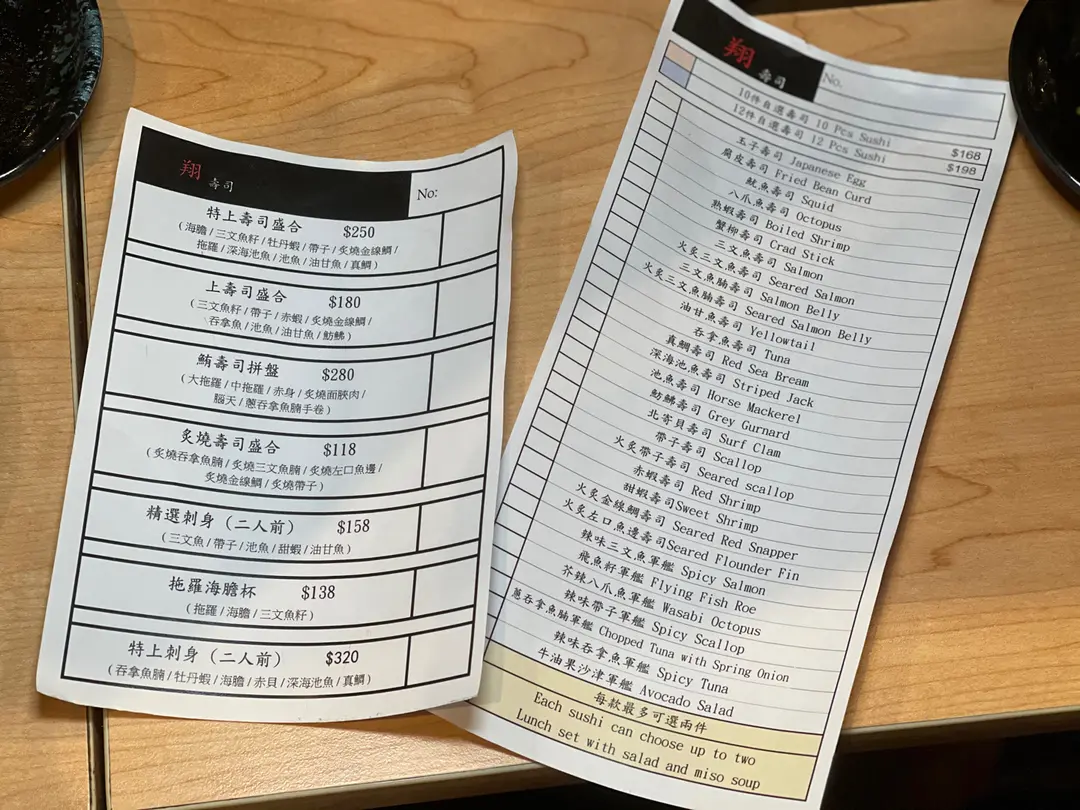 翔 壽司
No:
特上壽司盛合 $250
(海膽/三文魚籽/牡丹蝦/帶子/炙燒金線鯛/
拖羅/深海池魚/池魚/油甘魚/真鯛)
上壽司盛合 $180
(三文魚籽/帶子/赤蝦/炙燒金線鯛/
吞拿魚/池魚/油甘魚/魴鮄)
鮪壽司拼盤 $280
(大拖羅/中拖羅/赤身/炙燒面脥肉/
腦天/蔥吞拿魚腩手卷)
炙燒壽司盛合 $118
(炙燒吞拿魚腩/炙燒三文魚腩/炙燒左口魚邊/
炙燒金線鯛/炙燒帶子)
精選刺身(二人前) $158
(三文魚/帶子/池魚/甜蝦/油甘魚)
拖羅海膽杯 $138
(拖羅/海膽/三文魚籽)
特上刺身(二人前) $320
(吞拿魚腩/牡丹蝦/海膽/赤貝/深海池魚/真鯛)
翔 壽司
No.
10件自選壽司 10 Pcs Sushi $168
12件自選壽司 12 Pcs Sushi $198
玉子壽司 Japanese Egg
腐皮壽司 Fried Bean Curd
魷魚壽司 Squid
八爪魚壽司 Octopus
熟蝦壽司 Boiled Shrimp
蟹柳壽司 Crad Stick
三文魚壽司 Salmon
火炙三文魚壽司 Seared Salmon
三文魚腩壽司 Salmon Belly
火炙三文魚腩壽司 Seared Salmon Belly
油甘魚壽司 Yellowtail
吞拿魚壽司 Tuna
真鯛壽司 Red Sea Bream
深海池魚壽司 Striped Jack
池魚壽司 Horse Mackerel
魴鮄壽司 Grey Gurnard
北寄貝壽司 Surf Clam
帶子壽司 Scallop
火炙帶子壽司 Seared scallop
赤蝦壽司 Red Shrimp
甜蝦壽司Sweet Shrimp
火炙金線鯛壽司 Seared Red Snapper
火炙左口魚邊壽司Seared Flounder Fin
辣味三文魚軍艦 Spicy Salmon
飛魚籽軍艦 Flying Fish Roe
芥辣八爪魚軍艦 Wasabi Octopus
辣味帶子軍艦 Spicy Scallop
蔥吞拿魚腩軍艦 Chopped Tuna with Spring Onion
辣味吞拿魚軍艦 Spicy Tuna
牛油果沙津軍艦 Avocado Salad
每款最多可選兩件
Each sushi can choose up to two
Lunch set with salad and miso soup